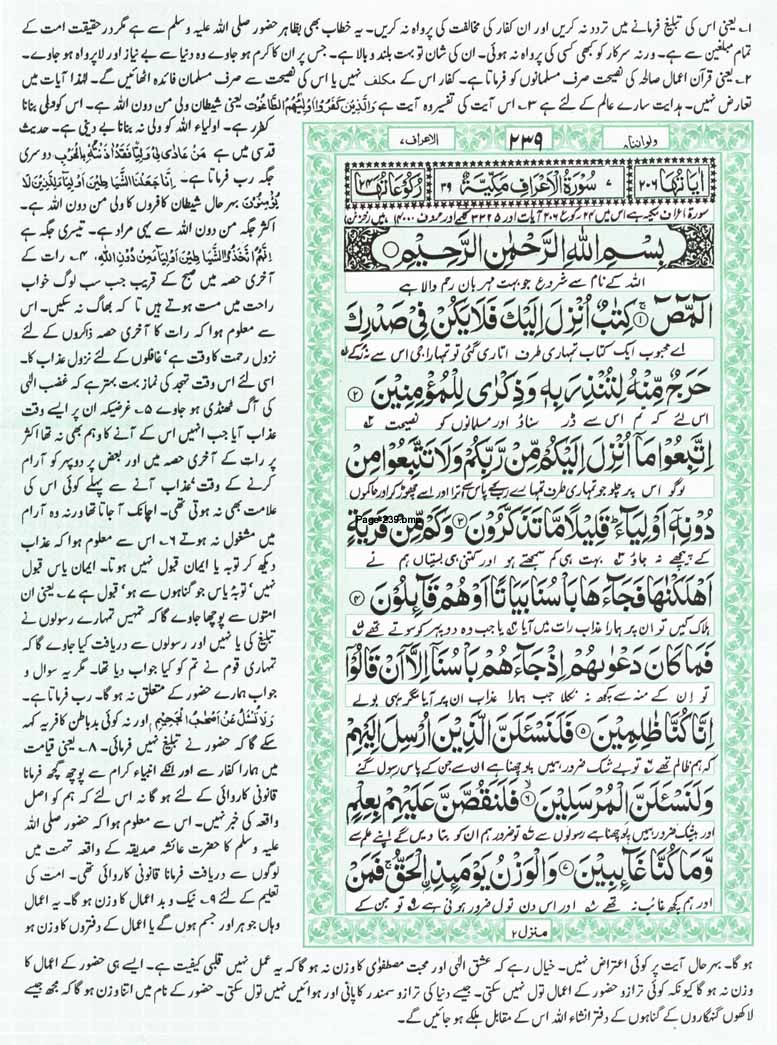 ۱۔ یعنی اس کی تبلیغ فرمانے میں تردد نہ کریں اور ان کفار کی مخالفت کی پرواہ نہ کریں۔ یہ خطاب بھی بظاہر حضور صلی اللہ علیہ وسلم سے ہے مگر در حقیقت امت کے
تمام مبلغین سے ہے۔ ورنہ سرکار کو کبھی کسی کی پرواہ نہ ہوئی۔ ان کی شان تو بہت بلند و بالا ہے۔ جس پر ان کا کرم ہو جاوے وہ دنیا سے بے نیاز اور لاپرواہ ہو جاوے۔
۲۔ یعنی قرآن اعمال صالحہ کی نصیحت صرف مسلمانوں کو فرماتا ہے۔ کفار اس کے مکلف نہیں یا اس کی نصیحت سے صرف مسلمان فائدہ اٹھائیں گے۔ لہٰذا آیات میں
تعارض نہیں۔ ہدایت سارے عالم کے لئے ہے ۳۔ اس آیت کی تفسیر وہ آیت ہے وَالَّذِیْنَ كَفَرُوْا اَوْلِیٰٓئُهُمُ الطَّاغُوْتُ یعنی شیطان ولی من دون اللہ ہے۔ اس کو ولی بنانا
کفر ہے۔ اولیاء اللہ کو ولی نہ بنانا بے دینی ہے۔ حدیث
قدسی میں ہے مَنْ عَادٰى لِيْ وَلِيًّا فَقَدْ اٰذَنْتُهٗ بِالْحَرْبِ دوسری
جگہ رب فرماتا ہے۔ اِنَّا جَعَلْنَا الشَّیٰطِیْنَ اَوْلِیَآءَ لِلَّذِیْنَ لَا
یُؤْمِنُوْنَ بہر حال شیطان کافروں کا ولی من دون اللہ ہے۔
اکثر جگہ من دون اللہ سے یہی مراد ہے۔ تیسری جگہ ہے
اِنَّهُمُ اتَّخَذُوا الشَّیٰطِیْنَ اَوْلِیَآءَ مِنْ دُوْنِ اللّٰهِ۔ ۴۔ رات کے
آخری حصہ میں صبح کے قریب جب سب لوگ خواب
راحت میں مست ہوتے ہیں تاکہ بھاگ نہ سکیں۔ اس
سے معلوم ہوا کہ رات کا آخری حصہ ذاکروں کے لئے
نزول رحمت کا وقت ہے' غافلوں کے لئے نزول عذاب کا۔
اسی لئے اس وقت تہجد کی نماز بہت بہتر ہے کہ غضب الٰہی
کی آگ ٹھنڈی ہو جاوے ۵۔ غرضیکہ ان پر ایسے وقت
عذاب آیا جب انہیں اس کے آنے کا وہم بھی نہ تھا اکثر
پر رات کے آخری حصہ میں اور بعض پر دوپہر کو آرام
کرنے کے وقت' عذاب آنے سے پہلے کوئی اس کی
علامت بھی نہ ہوتی تھی۔ اچانک آجاتا تھا ورنہ وہ آرام
میں مشغول نہ ہوتے ۶۔ اس سے معلوم ہوا کہ عذاب
دیکھ کر توبہ یا ایمان قبول نہیں ہوتا۔ ایمان یاس قبول
نہیں' توبہ یاس جو گناہوں سے ہو' قبول ہے ۷۔ یعنی ان
امتوں سے پوچھا جاوے گا کہ تمہیں تمہارے رسولوں نے
تبلیغ کی یا نہیں اور رسولوں سے دریافت کیا جاوے گا کہ
تمہاری قوم نے تم کو کیا جواب دیا تھا۔ مگر یہ سوال و
جواب ہمارے حضور کے متعلق نہ ہو گا۔ رب فرماتا ہے۔
وَلَا تُسْئَلُ عَنْ اَصْحٰبِ الْجَحِیْمِ اور نہ کوئی بدباطن کافر یہ کہہ
سکے گا کہ حضور نے تبلیغ نہیں فرمائی۔ ۸۔ یعنی قیامت
میں ہمارا کفار سے اور انکے انبیاء کرام سے پوچھ گچھ فرمانا
قانونی کاروائی کے لئے ہو گا نہ اس لئے کہ ہم کو اصل
واقعہ کی خبر نہیں۔ اس سے معلوم ہوا کہ حضور صلی اللہ
علیہ وسلم کا حضرت عائشہ صدیقہ کے واقعہ تہمت میں
لوگوں سے دریافت فرمانا قانونی کاروائی تھی۔ امت کی
تعلیم کے لئے ۹۔ نیک و بد اعمال کا وزن ہو گا۔ یہ اعمال
وہاں جوہر اور جسم ہوں گے یا اعمال کے دفتروں کا وزن ہو
ولو اننا ۸
۲۳۹
الاعراف ۷
اٰیَاتُهَا ۲۰۶
۷ سُوْرَةُ الْاَعْرَافِ مَكِّیَّةٌ ۳۹
رُكُوْعَاتُهَا ۲۴
سورۃ اعراف مکیہ ہے اس میں ۲۴ رکوع ۲۰۶ آیات اور ۳۳۲۵ کلمے اور حروف ۱۴۰۰۰ ہیں (خزائن)
بِسْمِ اللّٰهِ الرَّحْمٰنِ الرَّحِیْمِ
اللہ کے نام سے شروع جو بہت مہربان رحم والا ہے
الٓمّٓصٓ ۚ۝۱ كِتٰبٌ اُنْزِلَ اِلَیْكَ فَلَا یَكُنْ فِیْ صَدْرِكَ
اے محبوب ایک کتاب تمہاری طرف اتاری گئی تو تمہارا جی اس سے نہ رکے ف
حَرَجٌ مِّنْهُ لِتُنْذِرَ بِهٖ وَذِكْرٰى لِلْمُؤْمِنِیْنَ ۝۲
اس لئے کہ تم اس سے ڈر سناؤ اور مسلمانوں کو نصیحت ف
اِتَّبِعُوْا مَاۤ اُنْزِلَ اِلَیْكُمْ مِّنْ رَّبِّكُمْ وَلَا تَتَّبِعُوْا مِنْ
لوگو اس پر چلو جو تمہاری طرف تمہارے رب کے پاس سے اترا اور اسے چھوڑ کر اور حاکموں
دُوْنِهٖۤ اَوْلِیَآءَ ؕ قَلِیْلًا مَّا تَذَكَّرُوْنَ ۝۳ وَكَمْ مِّنْ قَرْیَةٍ
Page-239.bmp
کے پیچھے نہ جاؤ ف بہت ہی کم سمجھتے ہو اور کتنی ہی بستیاں ہم نے
اَهْلَكْنٰهَا فَجَآءَهَا بَاْسُنَا بَیَاتًا اَوْ هُمْ قَآئِلُوْنَ ۝۴
ہلاک کیں تو ان پر ہمارا عذاب رات میں آیا ف یا جب وہ دوپہر کو سوتے تھے ف
فَمَا كَانَ دَعْوٰىهُمْ اِذْ جَآءَهُمْ بَاْسُنَاۤ اِلَّاۤ اَنْ قَالُوْۤا
تو ان کے منہ سے کچھ نہ نکلا جب ہمارا عذاب ان پر آیا مگر یہی بولے
اِنَّا كُنَّا ظٰلِمِیْنَ ۝۵ فَلَنَسْـَٔلَنَّ الَّذِیْنَ اُرْسِلَ اِلَیْهِمْ
کہ ہم ظالم تھے ف تو بے شک ضرور ہمیں پوچھنا ہے ان سے جن کے پاس رسول گئے
وَلَنَسْـَٔلَنَّ الْمُرْسَلِیْنَ ۝۶ فَلَنَقُصَّنَّ عَلَیْهِمْ بِعِلْمٍ
اور بیشک ضرور ہمیں پوچھنا ہے رسولوں سے ف تو ضرور ہم ان کو بتا دیں گے اپنے علم سے
وَّمَا كُنَّا غَآئِبِیْنَ ۝۷ وَالْوَزْنُ یَوْمَئِذِ ِ۟الْحَقُّ ۚ فَمَنْ
اور ہم کچھ غائب نہ تھے ف اور اس دن تول ضرور ہونی ہے ف تو جن کے
منزل ۲
ہو گا۔ بہر حال آیت پر کوئی اعتراض نہیں۔ خیال رہے کہ عشق الٰہی اور محبت مصطفوی کا وزن نہ ہو گا کہ یہ عمل نہیں قلبی کیفیت ہے۔ ایسے ہی حضور کے اعمال کا
وزن نہ ہو گا کیونکہ کوئی ترازو حضور کے اعمال تول نہیں سکتی۔ جیسے دنیا کی ترازو سمندر کا پانی اور ہوائیں نہیں تول سکتی۔ حضور کے نام میں اتنا وزن ہو گا کہ مجھ جیسے
لاکھوں گنہگاروں کے گناہوں کے دفتر انشاء اللہ اس کے مقابل ہلکے ہو جائیں گے۔